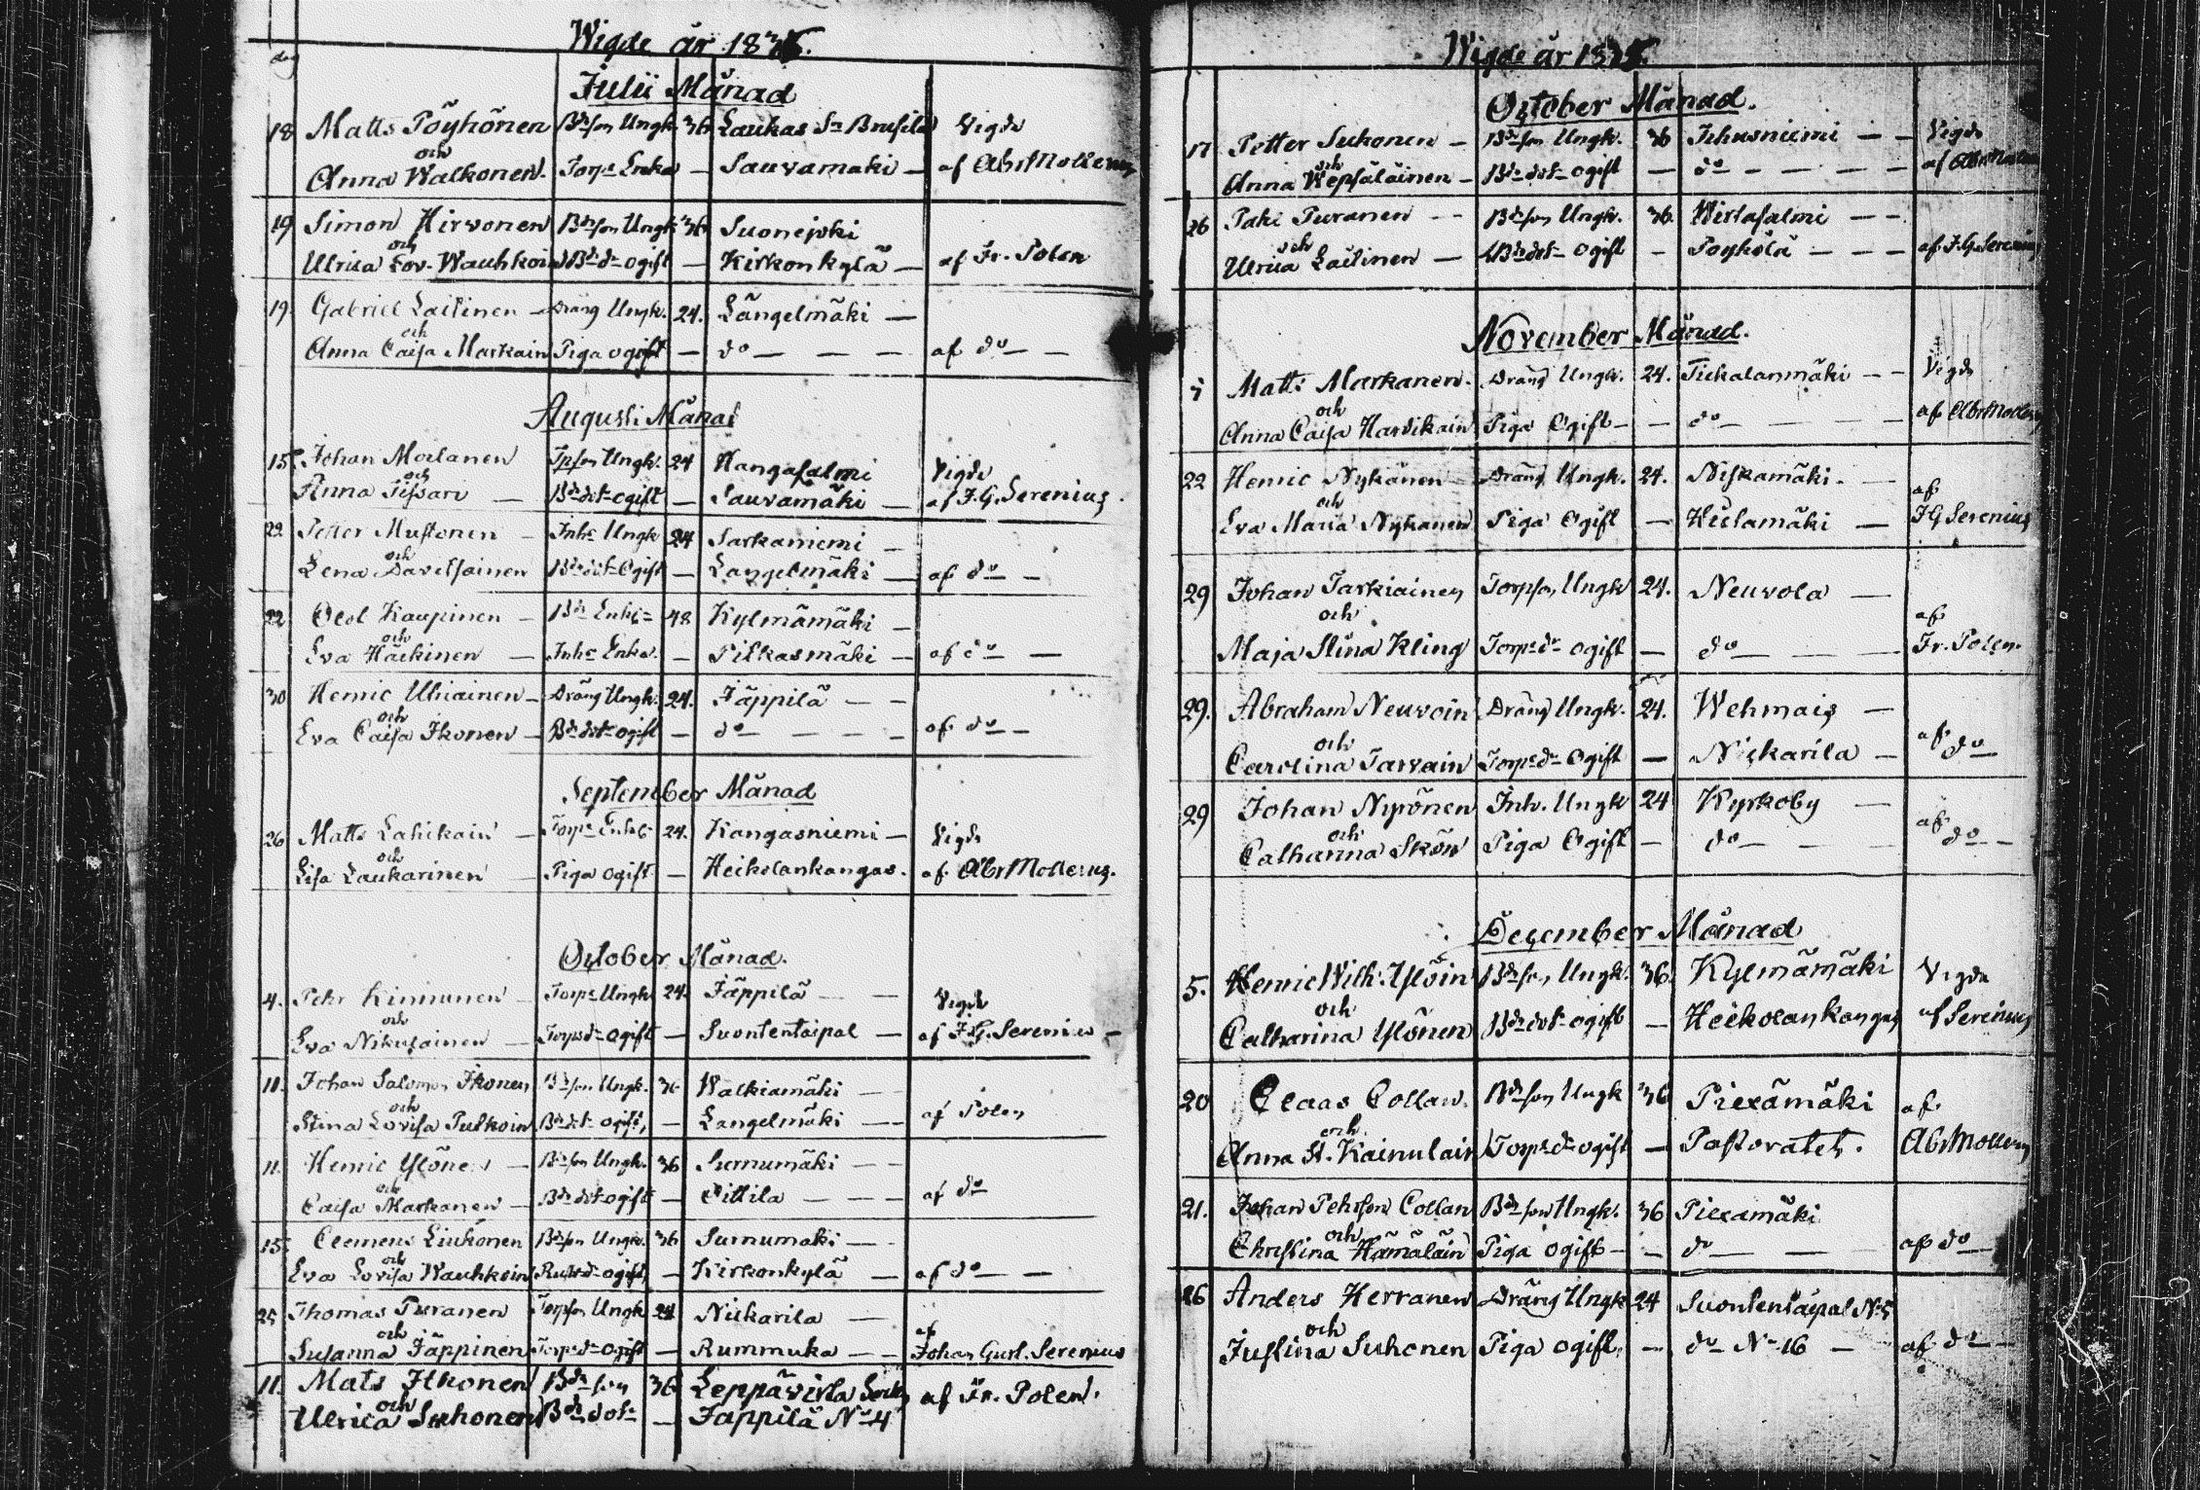 Wigde år 183
dag
Julii Månad
18 Matts Pöyhönen Bdeson Ungk. 36 Laukas Sn Vigde
och
Anna Walkonen. Torp. Enka — Sauvamäki — af Abr Mollerus
19 Simon Hirvonen Bdeson Ungk 36 Suonejoki
och
Ulrica Lov. Wauhkoin Bdr dr ogift — Kirkonkylä — af Fr. Polen
19 Gabriel Laitinen — Dräng Ungk. 24. Längelmäki —
och
Anna Caisa Markain Piga ogift — do — — — af do — —
Augusti Månad
15 Johan Moilanen Tpson Ungk. 24 Hangasalmi Vigde
och
Anna Tissari — Bdr dot ogift — Sauvamäki — af J.G. Serenius.
22 Petter Mustonen — Inhs Ungk 24 Sarkaniemi —
och
Lena Bdr dot Ogift — Längelmäki — af do —
22 Olof Kaupinen — Bdr Enkl. 48 Kylmämäki —
och
Eva Häckinen — Inhs Enka. — Pitkasmäki — af do —
30 Henric Uhiainen — Dräng Ungk. 24. Jäppilä — —
och
Eva Caisa Ikonen — Bdr dot ogift — do — — — — af do —
September Månad
26 Matts Lahikain — Torp. Enkl. 24. Kangasniemi — Vigde
och
Lisa Laukarinen — Piga ogift — Heikolankangas. af Abr Mollerus.
October Månad.
4. Pehr Kinnunen — Torp. Ungk 24. Jäppilä — — Vigde
och
Eva Nikulainen — Torps dr ogift — Suontentaipal — af J.G. Serenius —
11. Johan Salomon Ikonen Bdeson Ungk. 36 Walkiamäki —
och
Stina Lovisa Pulkoin Bdr dot ogift, — Längelmäki — af Polen
11. Henric Ylönen — Bdeson Ungk. 36 Surnumäki — —
och
Caisa Markanen — Bdr dot ogift — Pittila — — — af do
15. Clemens Liukonen Bdeson Ungk. 36 Surnumäki — —
och
Eva Lovisa Wauhkoin dr ogift, — Kirkonkylä — af do — —
25 Thomas Puranen Torpson Ungk 24 Nickarila — af
och
Susanna Jäppinen Torps dr ogift — Rummuka — — Johan Gust. Serenius
11. Mats Ikonen Bdeson 36 Leppävirta Sockn af Fr. Polen.
och
Ulrica Suhonen Bdr dotr — Jäppilä No 4
Wigde år 183
October Månad.
17 Petter Suhonen — Bdeson Ungk. 36 — — Vigde
och
Anna Wepsäläinen — Bdr dot ogift — do — — — — af Abr Mollerus
26 Puranen — — Bdeson Ungk. 36. Wirtasalmi — —
och
Ulrica Laitinen — Bdr dot ogift — Poyhölä — — — af J.G. Serenius
November Månad.
1 Matts Markanen. Dräng Ungk. 24. Tickalanmäki — — Vigde
och
Anna Caisa Hardikain Piga Ogift — — do — — — — af Abr Mollerus
22 Henric Nykänen Dräng Ungk. 24. Niskamäki. — af
och
Eva Maria Nykänen Piga Ogift — Hiislamäki — J G Serenius
29 Johan Tarkiainen Torpson Ungk 24. Neuvola — af
och
Maja Stina Kling Torps dr ogift — do — — — Fr. Polen.
29. Abraham Neuvoin Dräng Ungk. 24. Wehmais —
och
Carolina Tarvain Torps dr Ogift — Nickarila — af do
29 Johan Nyrönen Inh. Ungk 24 Kyrkoby —
och
Catharina Skön Piga Ogift — do — — — af do —
December Månad
5. Henric Wilh: Ylöin Bdeson Ungk. 36. Kylmämäki Vigde
och
Catharina Ylönen Bdr dot ogift — Heikolankangas af Serenius
20 Claas Collan. Bdeson Ungk 36 Piexämäki af
och
Anna St. Kainulain Torps dr ogift — Pastoratet. Abr Mollerus
21. Johan Pehrson Collan Bdeson Ungk. 36 Piexamäki
och
Christina Hämäläin Piga ogift — — do — — af do
26 Anders Herranen Dräng Ungk 24 Suontentaipal No 5
och
Justina Suhonen Piga ogift, — do No 16 — af do —